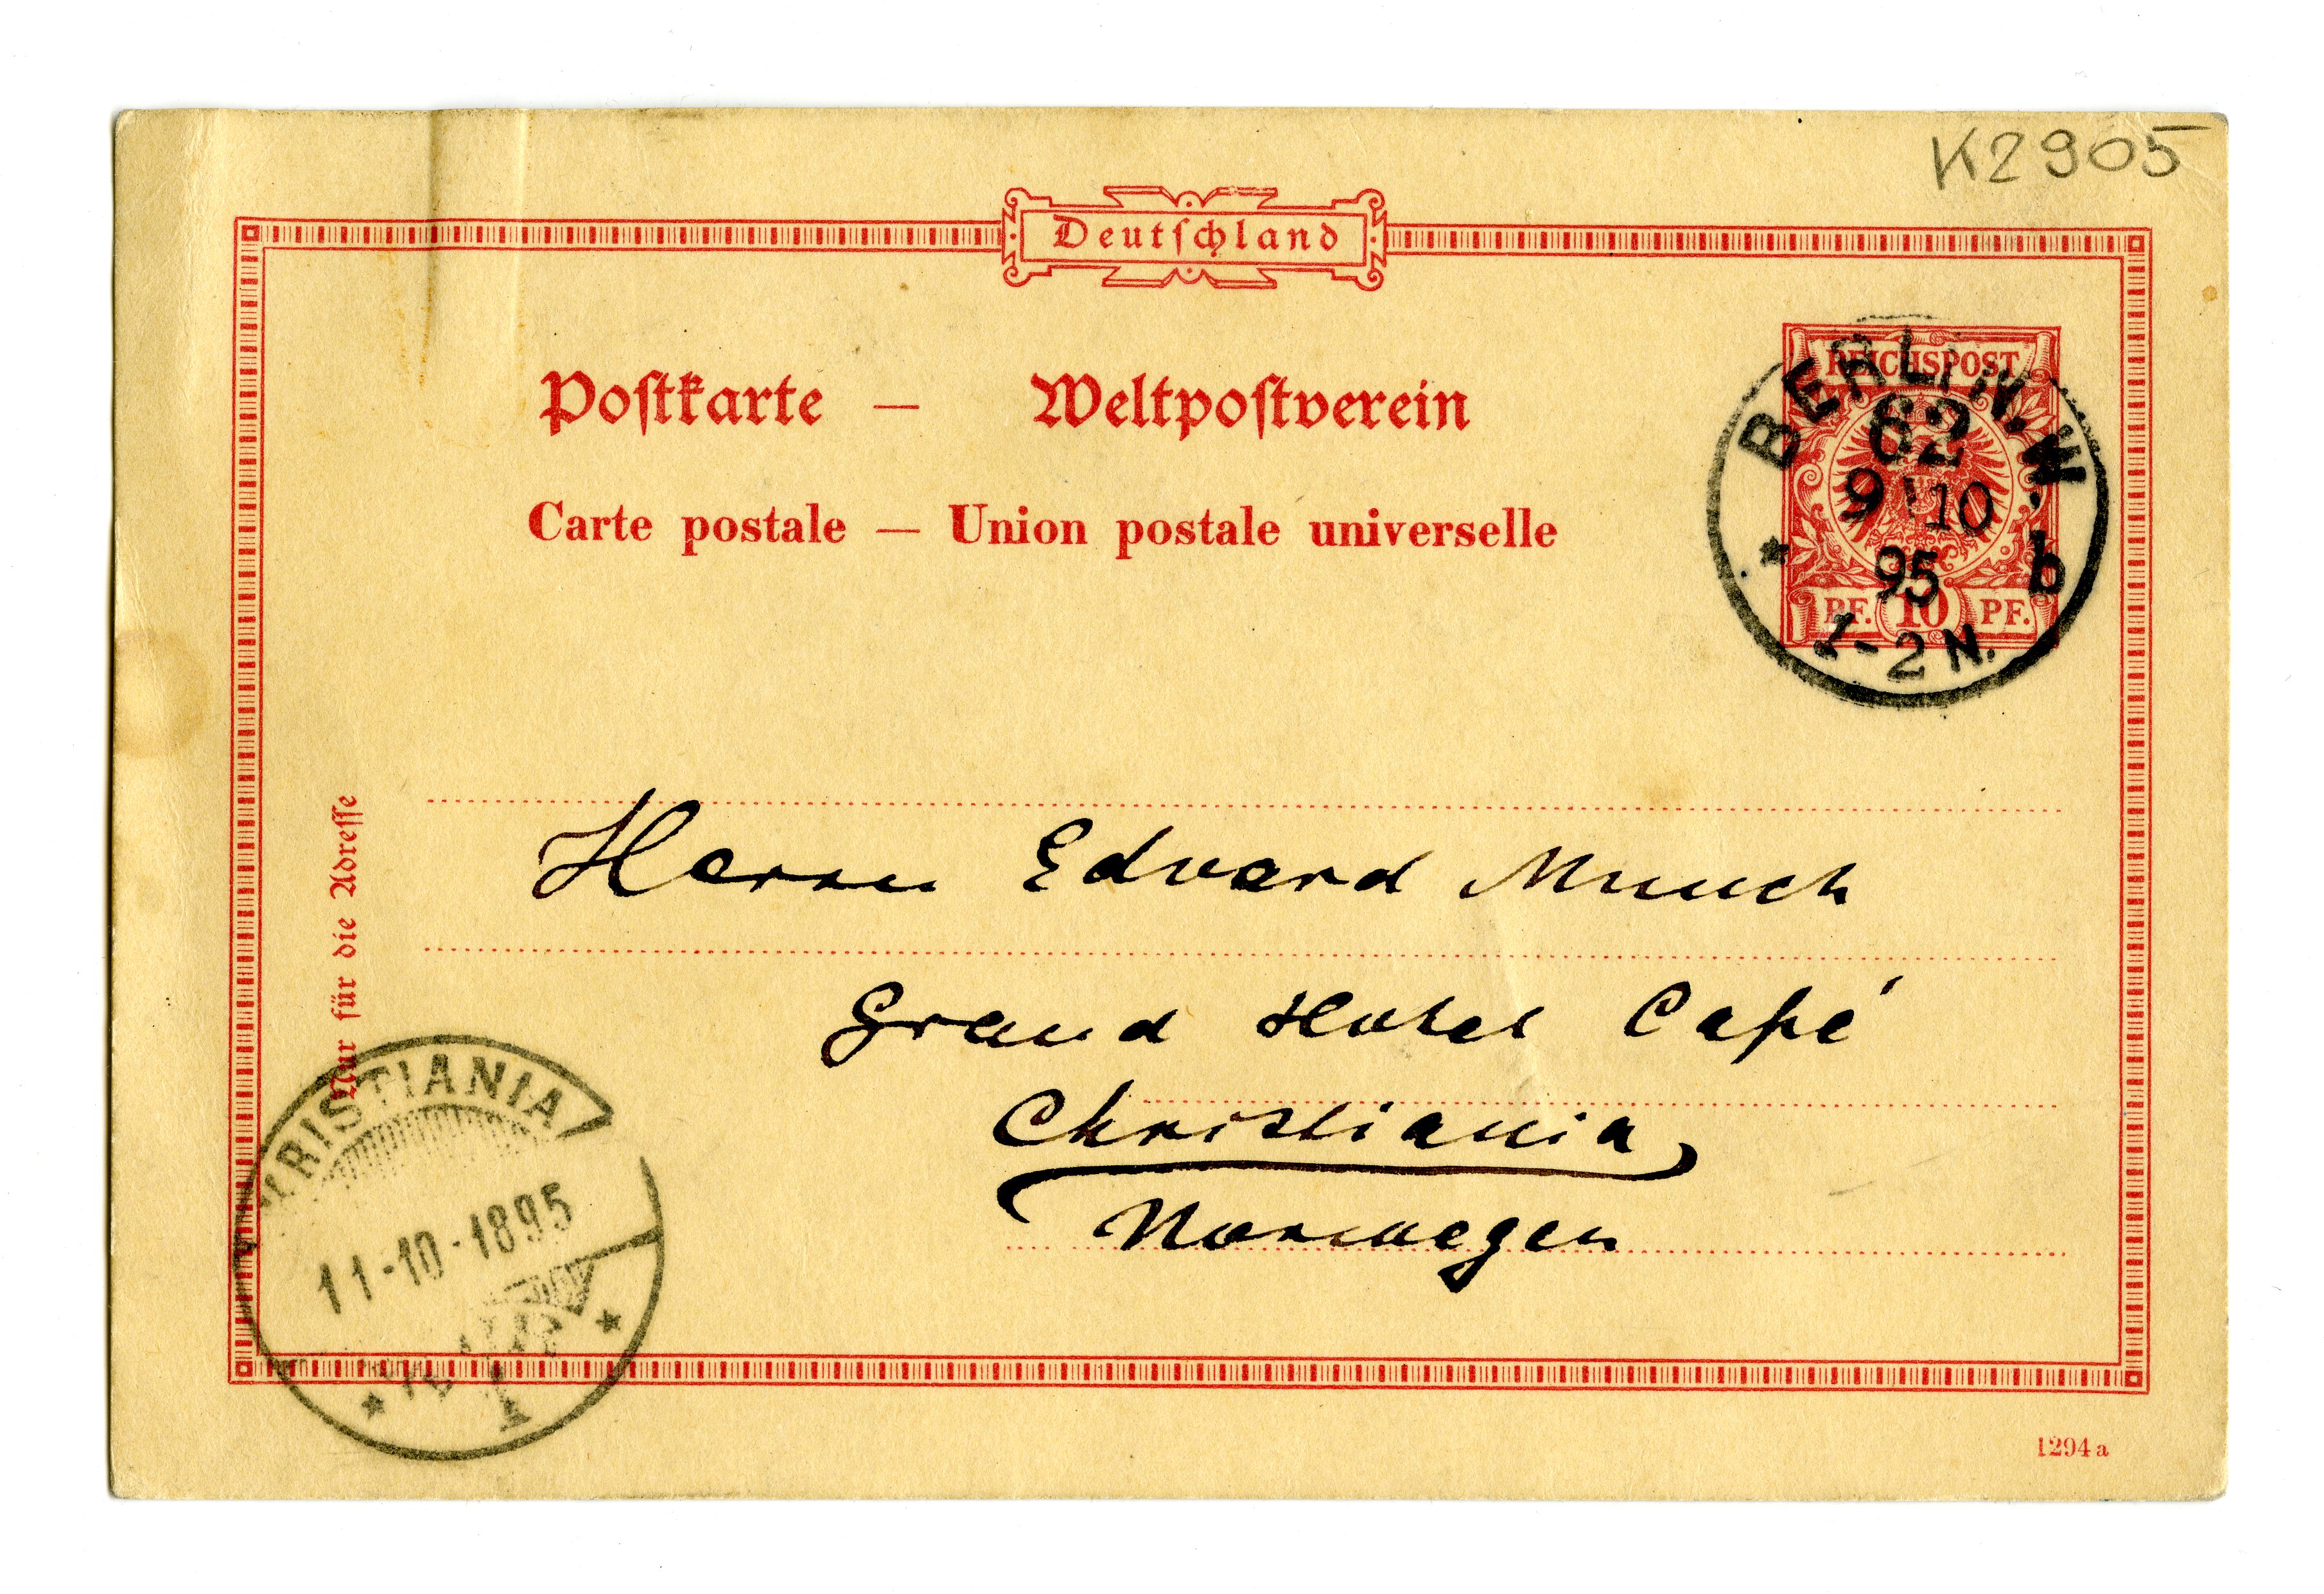 K2905
Deutſchland
Poſtkarte — Weltpoſtverein
Carte postale — Union postale universelle
REICHSPOST
PF. 10 PF.
BERLIN. W.
62
9 10
95 b
1-2 N.
Nur für die Adreſſe
Herrn Edvard Munch
Grand Hotel Café
Christiania
Norwegen
RISTIANIA
11-10-1895
1294 a